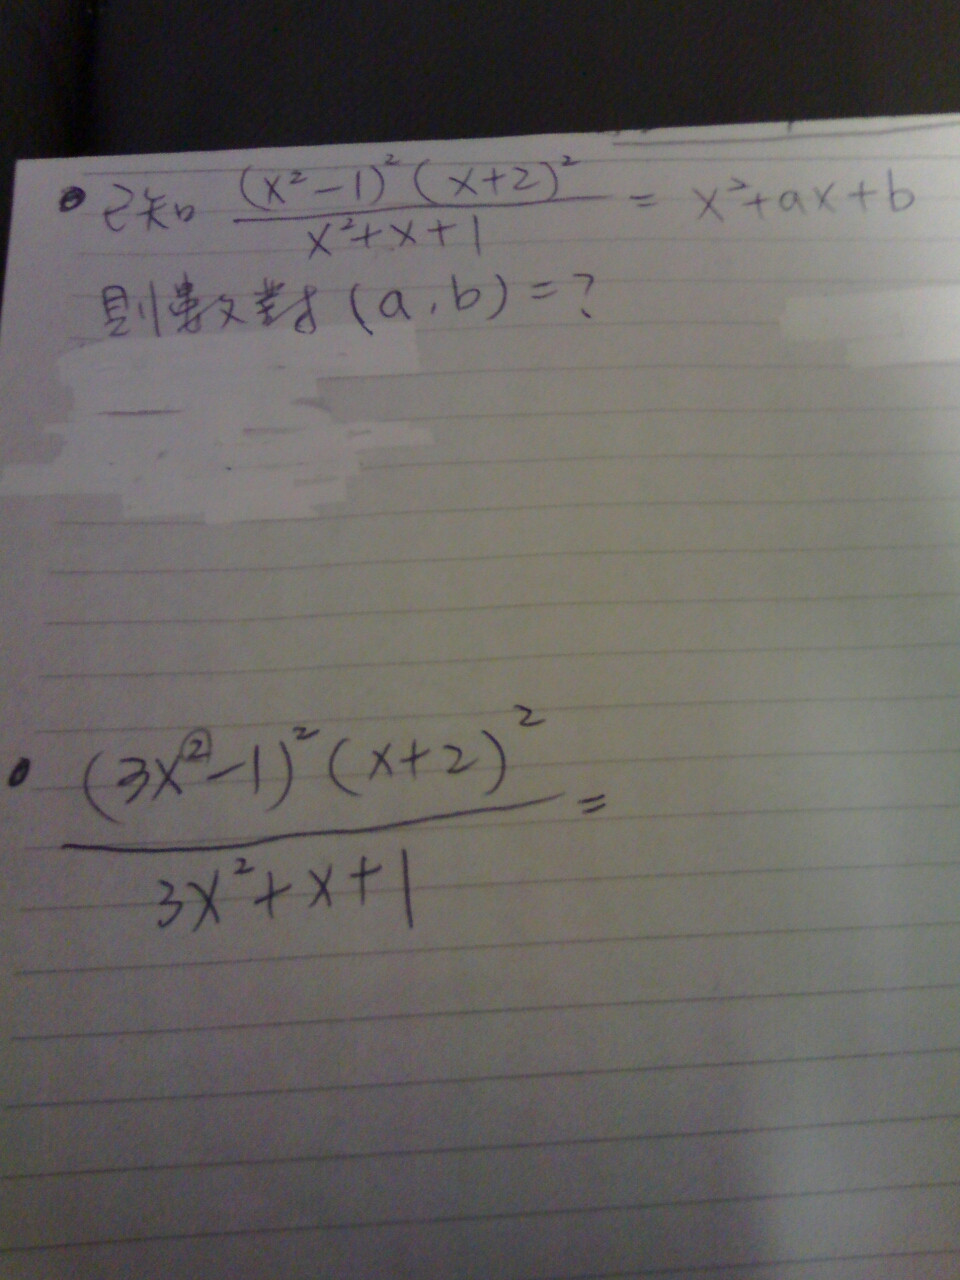 已知 (x²-1)² (x+2)² / x²+x+1 = x²+ax+b
則數對 (a, b) = ?
(3x²-1)² (x+2)² / 3x²+x+1 =